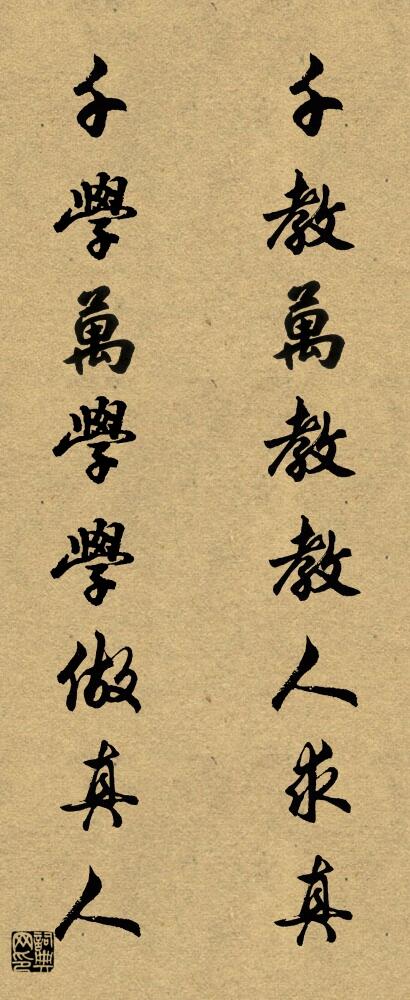 千教萬教教人求真
千學萬學學做真人
詞典网印